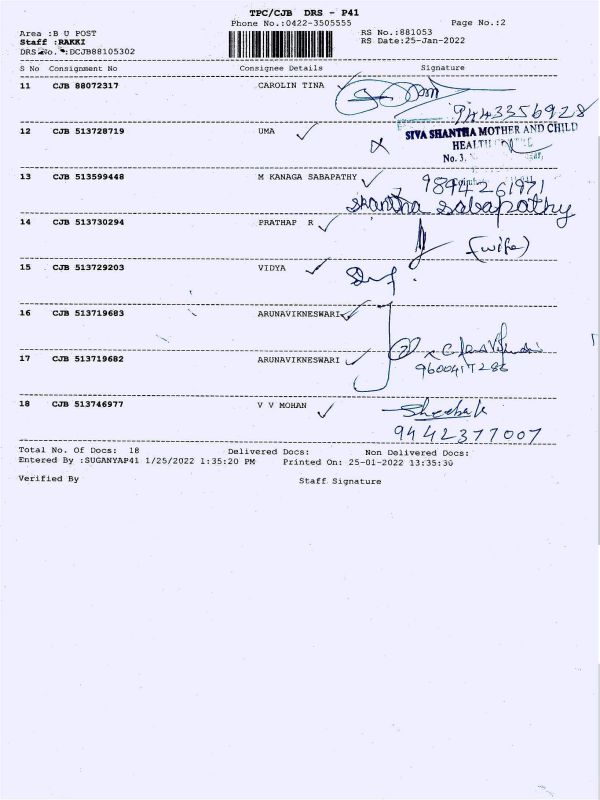 TPC/CJB DRS - P41
Phone No.:0422-3505555 Page No.:2
Area :B U POST RS No.:881053
Staff :RAKKI RS Date:25-Jan-2022
DRS No. :DCJB88105302
S No Consignment No Consignee Details Signature
11 CJB 88072317 CAROLIN TINA
9443356928
12 CJB 513728719 UMA
SIVA SHANTHA MOTHER AND CHILD
HEALTH
No. 3,
13 CJB 513599448 M KANAGA SABAPATHY
9894261971
shantha sabapathy
14 CJB 513730294 PRATHAP R
(wife)
15 CJB 513729203 VIDYA
16 CJB 513719683 ARUNAVIKNESWARI
17 CJB 513719682 ARUNAVIKNESWARI
9600417286
18 CJB 513746977 V V MOHAN
9442377007
Total No. Of Docs: 18 Delivered Docs: Non Delivered Docs:
Entered By :SUGANYAP41 1/25/2022 1:35:20 PM Printed On: 25-01-2022 13:35:30
Verified By Staff Signature